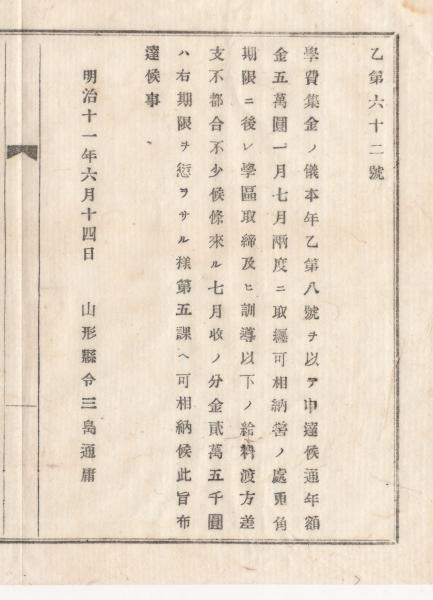 乙第六十二號
學費集金ノ儀本年乙第八號ヲ以テ申達候通年額
金五萬圓一月七月兩度ニ取纏可相納筈ノ處兎角
期限ニ後レ學區取締及ヒ訓導以下ノ給料渡方差
支不都合不少候條來ル七月收ノ分金貳萬五千圓
ハ右期限ヲ愆ラサル樣第五課ヘ可相納候此旨布
達候事
明治十一年六月十四日 山形縣令三島通庸